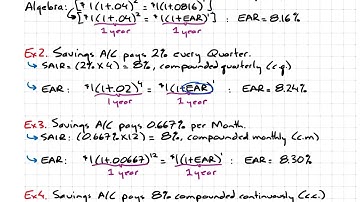 Algebra: [$1(1+.04)² = $1(1+.0816)¹]
[$1(1+.04)² = $1(1+EAR)¹] : EAR = 8.16%
1 year 1 year
Ex2. Savings A/C pays 2% every Quarter.
↳ SAIR = (2% × 4) = 8%, compounded quarterly (c.q)
↳ EAR: $1(1+.02)⁴ = $1(1+EAR)¹ : EAR = 8.24%
1 year 1 year
Ex3. Savings A/C pays 0.667% per Month.
↳ SAIR: (0.667% × 12) = 8%, compounded monthly (c.m)
↳ EAR: $1(1+.00667)¹² = $1(1+EAR)¹ : EAR = 8.30%
1 year 1 year
Ex4. Savings A/C pays 8% compounded continuously (c.c.)